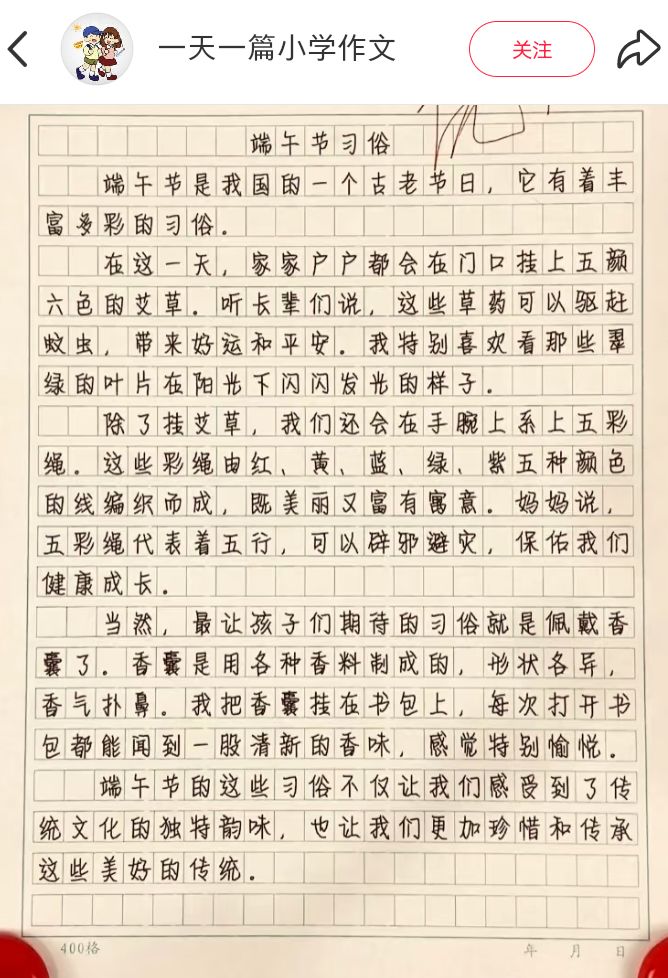 一天一篇小学作文
关注
端午节习俗
端午节是我国的一个古老节日，它有着丰
富多彩的习俗。
在这一天，家家户户都会在门口挂上五颜
六色的艾草。听长辈们说，这些草药可以驱赶
蚊虫，带来好运和平安。我特别喜欢看那些翠
绿的叶片在阳光下闪闪发光的样子。
除了挂艾草，我们还会在手腕上系上五彩
绳。这些彩绳由红、黄、蓝、绿、紫五种颜色
的线编织而成，既美丽又富有寓意。妈妈说，
五彩绳代表着五行，可以辟邪避灾，保佑我们
健康成长。
当然，最让孩子们期待的习俗就是佩戴香
囊了。香囊是用各种香料制成的，形状各异，
香气扑鼻。我把香囊挂在书包上，每次打开书
包都能闻到一股清新的香味，感觉特别愉悦。
端午节的这些习俗不仅让我们感受到了传
统文化的独特韵味，也让我们更加珍惜和传承
这些美好的传统。
400格
年 月 日